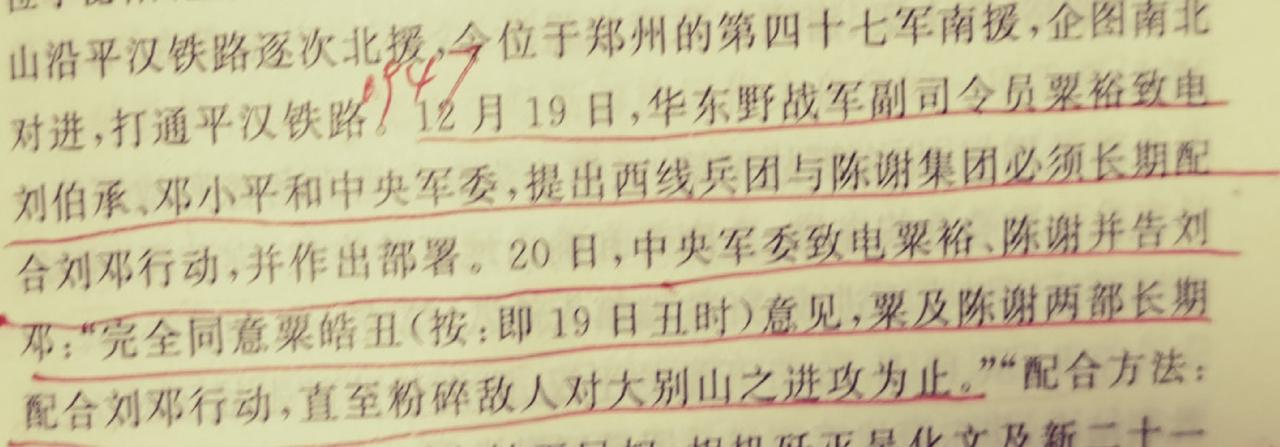 山沿平汉铁路逐次北援,令位于郑州的第四十七军南援,企图南北
1947
对进,打通平汉铁路。12月19日,华东野战军副司令员粟裕致电
刘伯承、邓小平和中央军委,提出西线兵团与陈谢集团必须长期配
合刘邓行动,并作出部署。20日,中央军委致电粟裕、陈谢并告刘
邓:“完全同意粟皓丑(按:即19日丑时)意见,粟及陈谢两部长期
配合刘邓行动,直至粉碎敌人对大别山之进攻为止。”“配合方法: